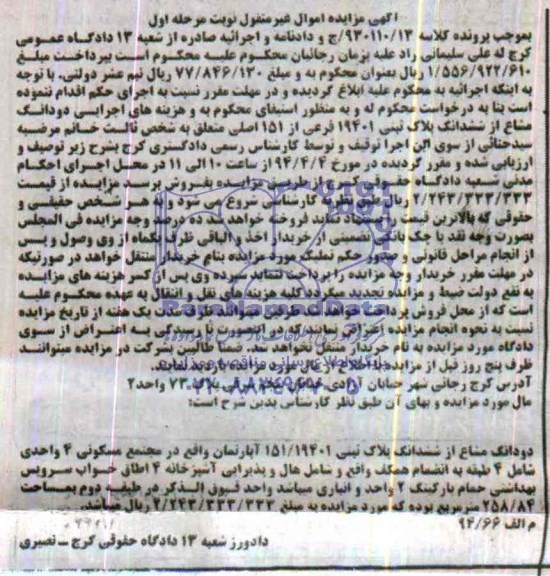 آگهی مزایده اموال غیرمنقول نوبت مرحله اول
بموجب پرونده کلاسه ۹۳۰۱۱۰/۱۳/ج و دادنامه و اجرائیه صادره از شعبه ۱۳ دادگاه عمومی
کرج له علی سلیمانی راد علیه پژمان رجائیان محکوم علیه محکوم است بپرداخت مبلغ
۱/۵۵۶/۹۲۲/۶۱۰ ریال بعنوان محکوم به و مبلغ ۷۷/۸۴۶/۱۳۰ ریال نیم عشر دولتی. با توجه
به اینکه اجرائیه به محکوم علیه ابلاغ گردیده و در مهلت مقرر نسبت به اجرای حکم اقدام ننموده
است بنا به درخواست محکوم له و به منظور استیفای محکوم به و هزینه های اجرایی دودانگ
مشاع از ششدانگ پلاک ثبتی ۱۹۴۰۱ فرعی از ۱۵۱ اصلی متعلق به شخص ثالث خانم مرضیه
سیدحنائی از سوی این اجرا توقیف و توسط کارشناس رسمی دادگستری کرج بشرح زیر توصیف و
ارزیابی شده و مقرر گردیده در مورخ ۹۴/۴/۴ از ساعت ۱۰ الی ۱۱ در محل اجرای احکام
مدنی شعبه دادگاه حقوقی کرج از طریق مزایده بفروش برسد مزایده از قیمت
۲/۲۴۳/۳۳۳/۳۳۳ ریال طبق نظریه کارشناس شروع می شود و به هر شخص حقیقی و
حقوقی که بالاترین قیمت را پیشنهاد نماید فروخته خواهد شد درصد وجه مزایده فی المجلس
بصورت وجه نقد یا چک بانکی تضمینی از خریدار اخذ و الباقی ظرف یکماه از وی وصول و پس
از انجام مراحل قانونی و صدور حکم تملیک مورد مزایده بنام خریدار منتقل خواهد در صورتیکه
در مهلت مقرر خریدار وجه مزایده را پرداخت ننماید سپرده وی پس از کسر هزینه های مزایده
به نفع دولت ضبط و مزایده تجدید میگردد کلیه هزینه های نقل و انتقال به عهده محکوم علیه
است که از محل فروش پرداخت خواهد شد طرفین میتوانند ظرف مدت یک هفته از تاریخ مزایده
نسبت به نحوه انجام مزایده اعتراض نمایند که در اینصورت تا رسیدگی به اعتراض از سوی
دادگاه مورد مزایده به نام خریدار منتقل نخواهد شد. ضمنا طالبین بشرکت در مزایده میتوانند
ظرف پنج روز قبل از مزایده با اطلاع از مورد مزایده بازدید نمایند.
آدرس کرج رجائی شهر خیابان آزادی پلاک ۷۳ واحد ۲
مال مورد مزایده و بهای آن طبق نظر کارشناس بدین شرح است:
دودانگ مشاع از ششدانگ پلاک ثبتی ۱۵۱/۱۹۴۰۱ آپارتمان واقع در مجتمع مسکونی ۴ واحدی
شامل ۴ طبقه به انضمام همکف واقع و شامل هال و پذیرایی آشپزخانه ۴ اطاق خواب سرویس
بهداشتی حمام پارکینگ ۲ واحد و انباری میباشد واحد فوق الذکر در طبقه دوم بمساحت
۲۵۸/۸۴ مترمربع بوده که مورد مزایده به مبلغ ۲/۲۴۳/۳۳۳/۳۳۳ ریال میباشد.
م الف ۹۴/۶۶
دادورز شعبه ۱۳ دادگاه حقوقی کرج ـ نصیری